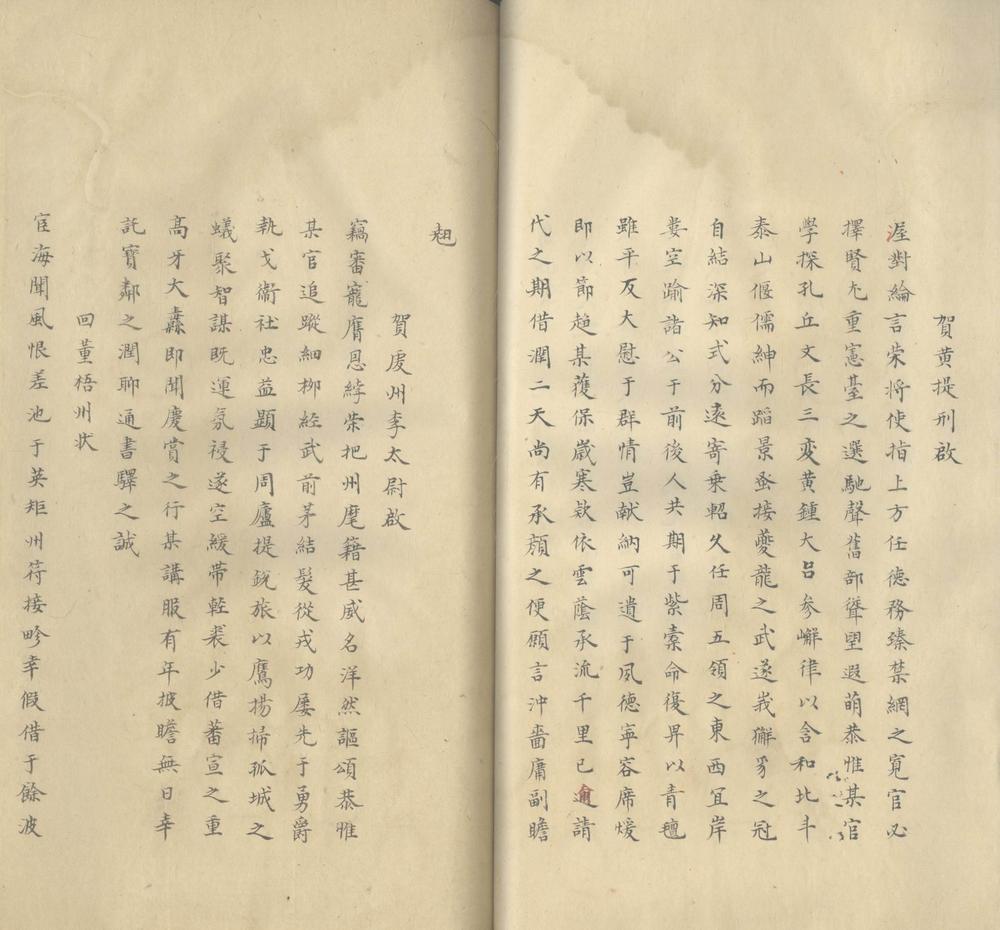 賀黄提刑啟
渥對綸言荣将使指上方任德務臻禁網之寬官必
擇賢尤重憲臺之選馳聲舊部聳望遐萌恭惟某官
學探孔丘文長三変黄鍾大吕参嶰律以含和北斗
泰山偃儒紳而蹈景蚤接夔龍之武遂峩獬豸之冠
自結深知式分遠寄乗軺久任周五領之東西冝岸
婁空踰諸公于前後人共期于紫橐命復昇以青氊
雖平反大慰于群情豈献納可遺于夙德寕容席煖
即以節趋某䕶保嵗寒欵依雲蔭承流千里已逾請
代之期借潤二天尚有承顔之便願言沖嗇庸副瞻
翹
賀虔州李太尉啟
竊審寵膺恩綍荣把州麾籍甚威名洋然謳頌恭惟
某官追蹤細柳経武前茅結髪從戎功屡先于勇爵
執戈衛社忠益顕于周廬提鋭旅以鷹揚掃孤城之
蟻聚智謀既運氛祲遂空緩帯輕裘少借蕃宣之重
高牙大纛即聞慶賞之行某講服有年披瞻無日幸
託寳鄰之潤聊通書驛之誠
回董梧州状
宦海聞風恨差池于英矩州符接畛幸假借于餘波